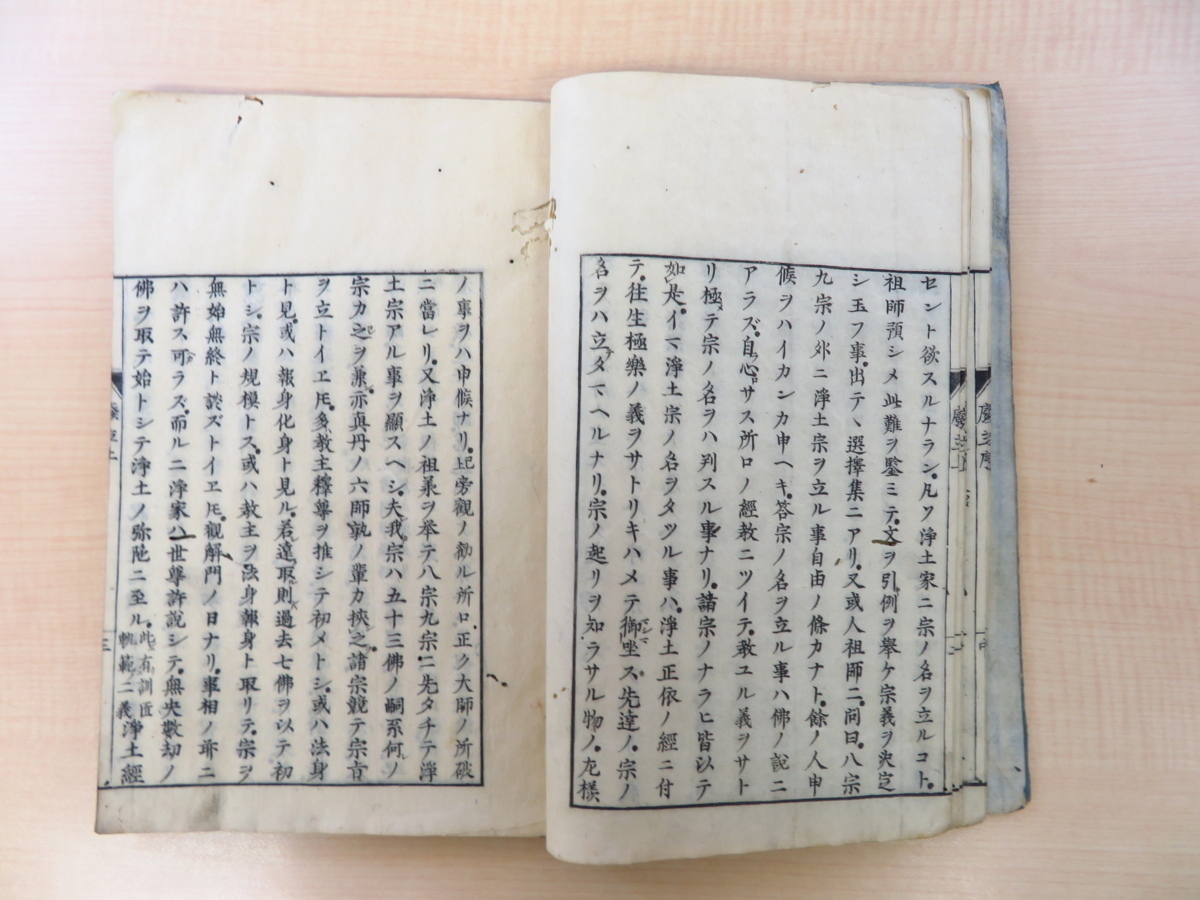 セント欲スルナラン。凡ソ浄土家ニ宗ノ名ヲ立ルコト。
祖師預シメ此難ヲ鑒ミテ。文ヲ引例ヲ舉ケ宗義ヲ决定
シ玉フ事。出テヽ選擇集ニアリ。又或人祖師ニ。問曰。八宗
九宗ノ外ニ浄土宗ヲ立ル事自由ノ條カナト。餘ノ人申
候ヲハイカンカ申ヘキ。答宗ノ名ヲ立ル事ハ佛ノ說ニ
アラズ。自心サス所ロノ經教ニツイテ。教ユル義ヲサト
リ極テ宗ノ名ヲハ判スル事ナリ。諸宗ノナラヒ皆以テ
如是。イマ淨土宗ノ名ヲタツル事ハ。淨土正依ノ經ニ付
テ。往生極樂ノ義ヲサトリキハメテ御坐ス先達ノ。宗ノ
名ヲハ立タマヘルナリ。宗ノ起リヲ知ラサル物ノ。左樣
ノ事ヲハ申候ナリ。已上旁觀ノ勸ル所ロ。正ク大師ノ所破
ニ當レリ。又淨土ノ祖承ヲ举テ八宗九宗ニ先タチテ淨
土宗アル事ヲ顯スヘシ。夫我宗ハ五十三佛ノ嗣系何ノ
宗カ之ヲ兼。亦真丹ノ六師孰ノ輩カ挾之。諸宗競テ宗旨
ヲ立トイエ𪜈。多教主釋尊ヲ推シテ初メトシ。或ハ法身
ト見。或ハ報身化身ト見ル。若遠取則過去七佛ヲ以テ初
トシ。宗ノ規模トス。或ハ教主ヲ法身報身ト取リテ。宗ヲ
無始無終ト談ズトイエ𪜈。觀解門ノ日ナリ。事相ノ前ニ
ハ許ス可ラズ。而ルニ淨家ハ世尊許說シテ。無央數劫ノ
佛ヲ取テ始トシテ淨土ノ弥陀ニ至ル。此有訓匠軌範二義淨土經